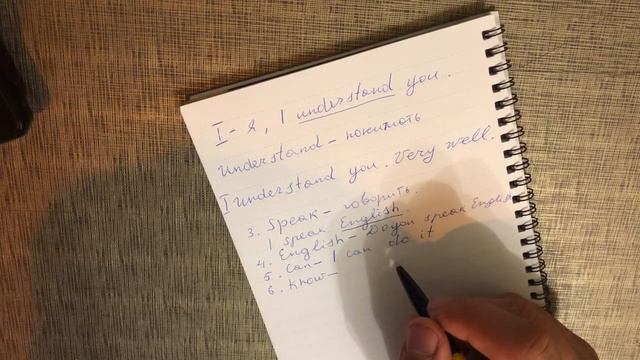 I - я, I understand you.
Understand - понимать
I understand you. Very well.
3. Speak - говорить.
I speak English.
4. English - Do you speak English
5. Can - I can do it
6. Know -